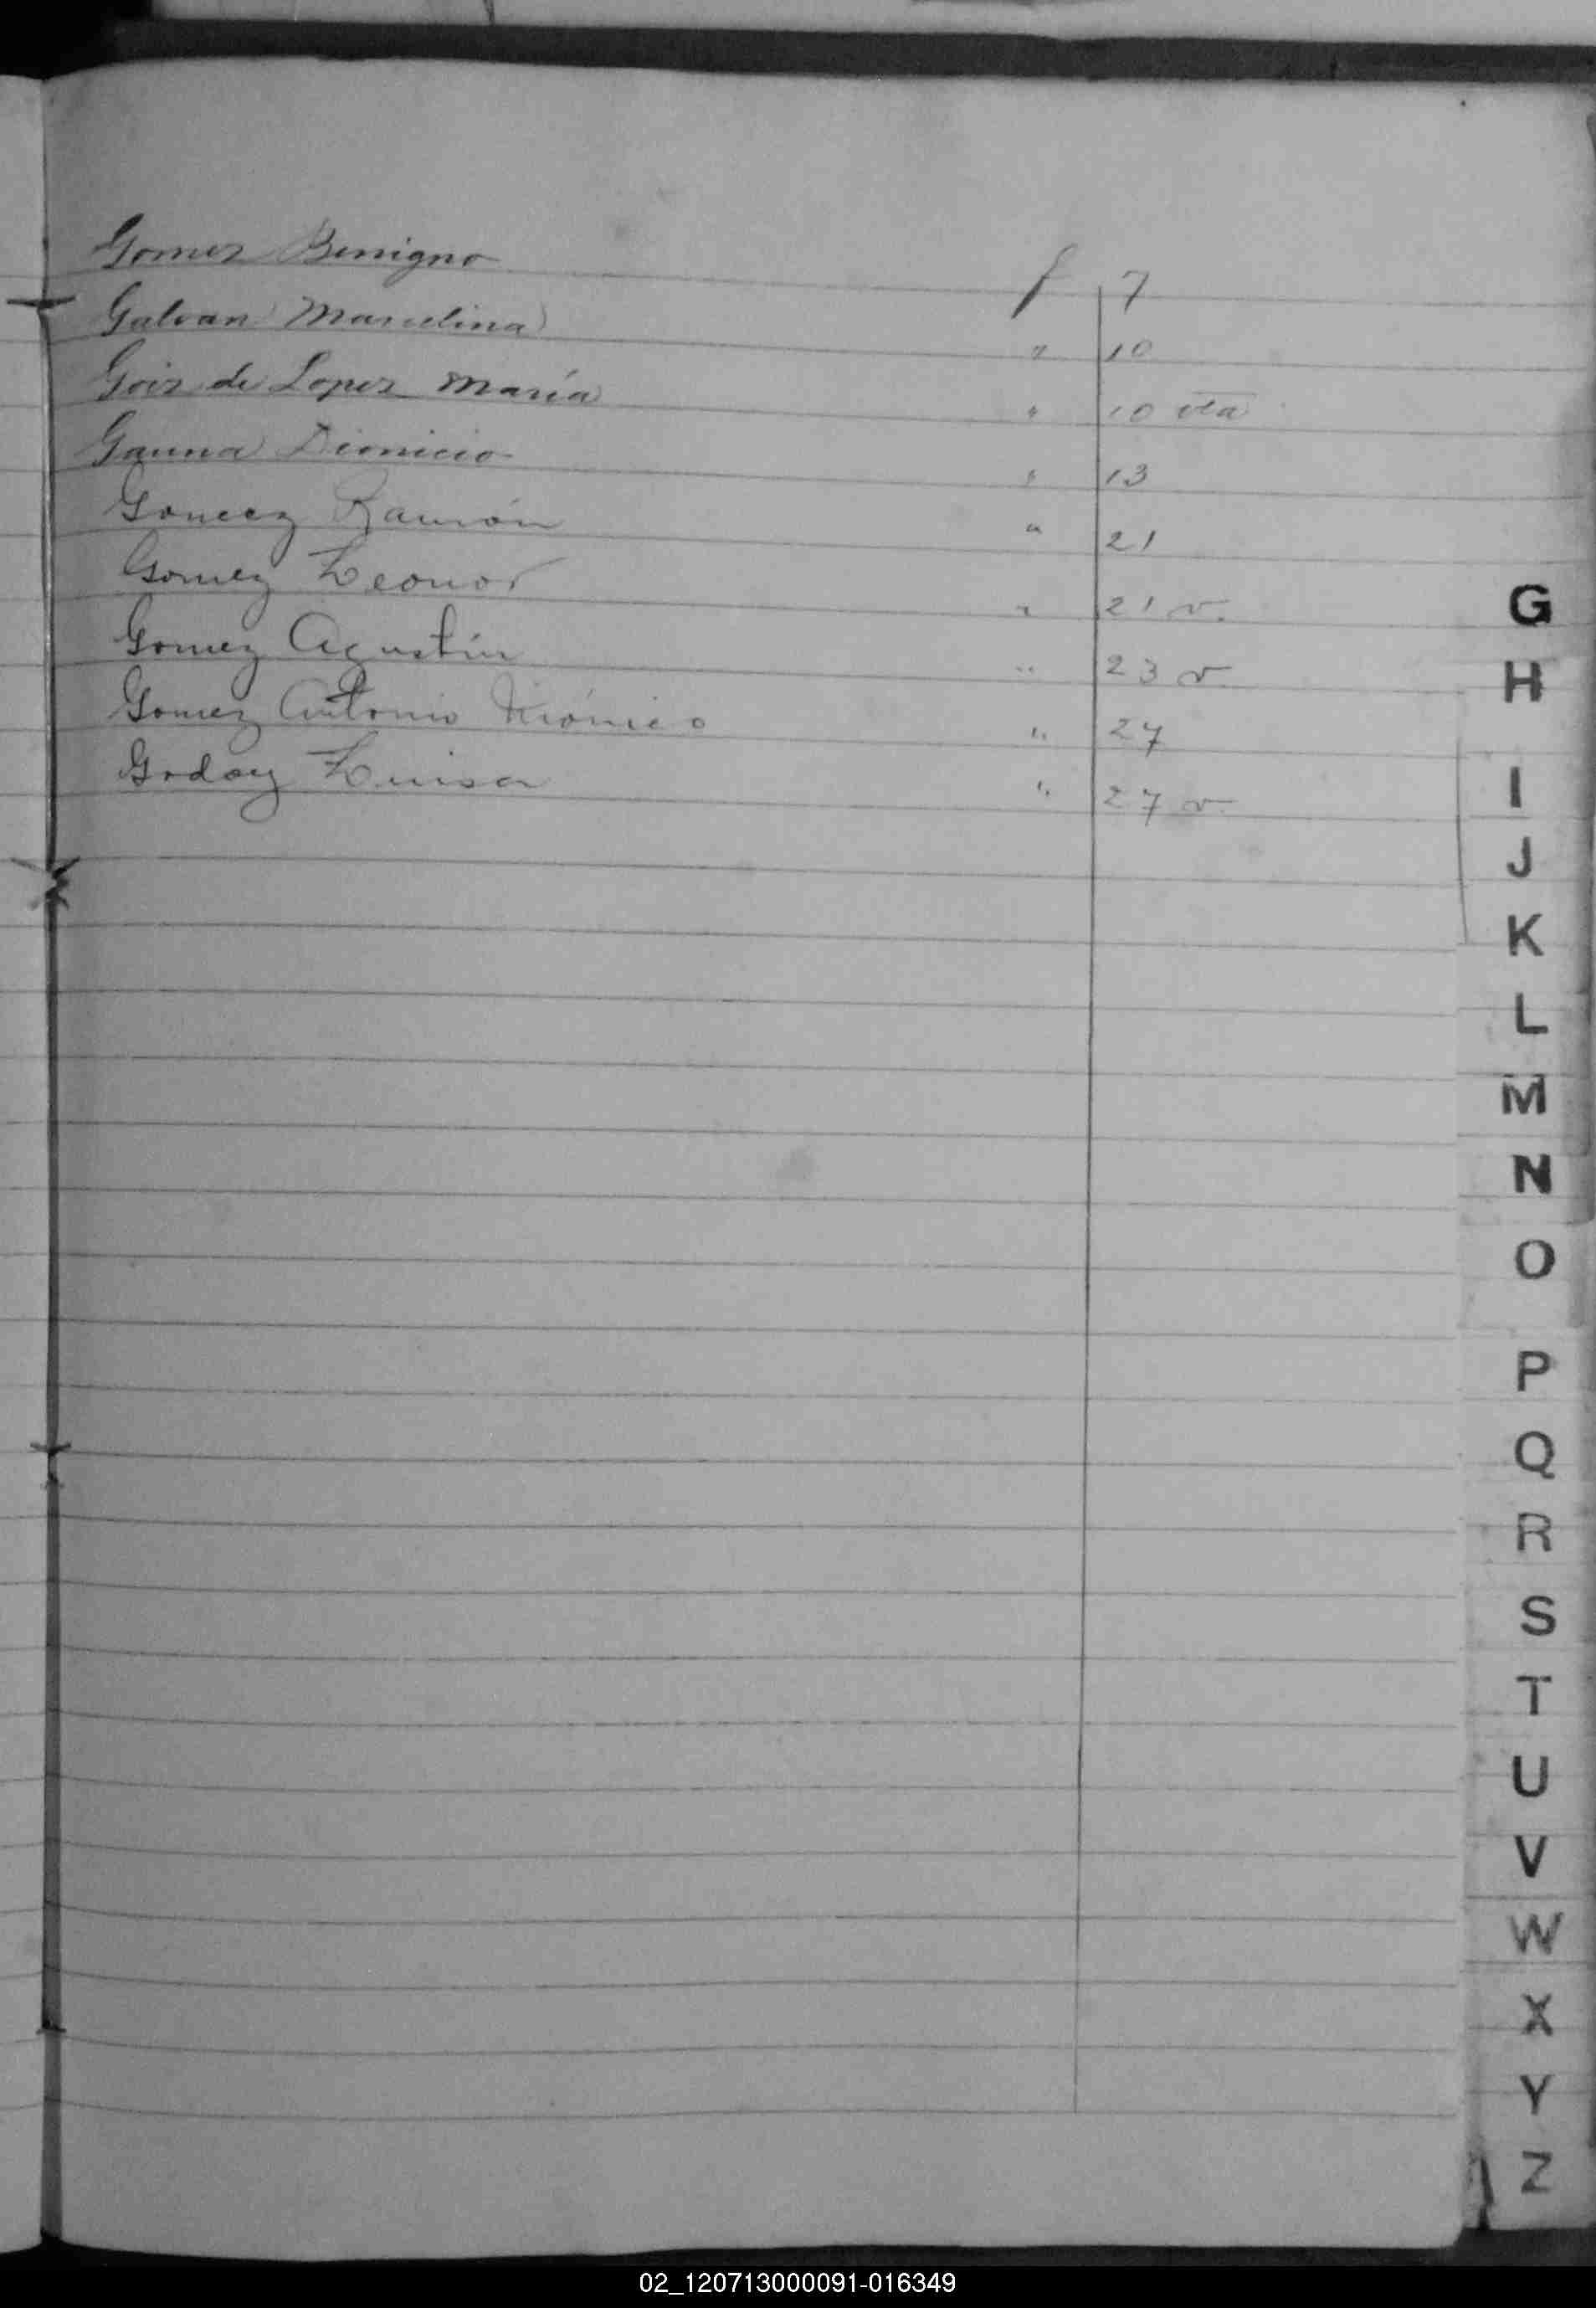 Gomez Benigno f 7
Galvan Marcelina " 10
Goiz de Lopez María " 10 vta
Gauna Dionicio " 13
Gomez Ramón " 21
Gomez Leonor " 21 v.
Gomez Agustín " 23 v
Gomez Antonio " 27
Godoy Luisa " 27 v
G
H
I
J
K
L
M
N
O
P
Q
R
S
T
U
V
W
X
Y
Z
02_120713000091-016349